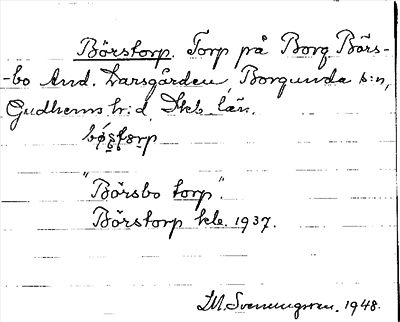 Börstorp. Torp på Borg Börs-
-bo And. Larsgården, Borgunda s:n,
Gudhems h:d, Skb. län.
"Börsbo torp".
Börstorp kbc. 1937.
M. Svenungsson. 1948.